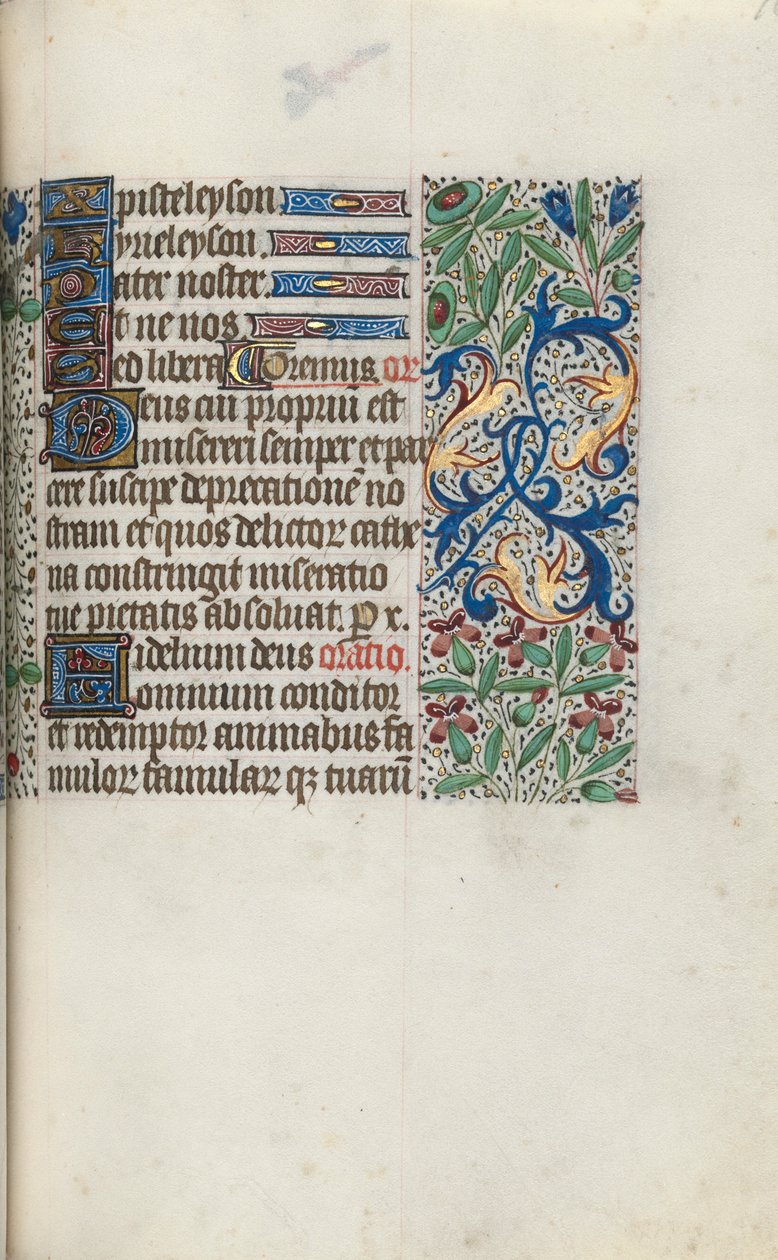 Xpisteleyson.
Kyrieleyson.
Pater noster.
Et ne nos
Sed libera Oremus. or
Deus cui propriu̅ est
misereri semper et par
cere suscipe deprecatione̅ no
stram et quos delictoꝝ cathe
na constringit miseratio
tue pietatis absoluat. P x.
Fidelium deus oratio.
omnium conditor
et redemptor animabus fa
muloꝝ famulaꝝ qꝫ tuaru̅